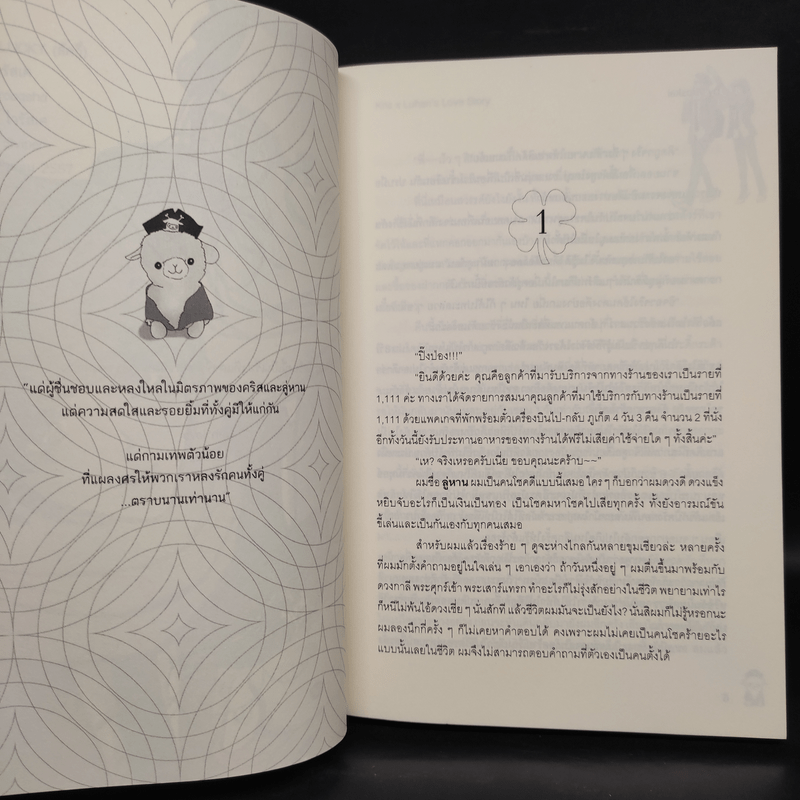 “แด่ผู้ชื่นชอบและหลงใหลในมิตรภาพของคริสและลู่หาน
แด่ความสดใสและรอยยิ้มที่ทั้งคู่มีให้แก่กัน
แด่กามเทพตัวน้อย
ที่แผลงศรให้พวกเราหลงรักคนทั้งคู่
...ตราบนานเท่านาน”
1
“ปิ๊งป่อง!!!”
“ยินดีด้วยค่ะ คุณคือลูกค้าที่มารับบริการจากทางร้านของเราเป็นรายที่
1,111 ค่ะ ทางเราได้จัดรายการสมนาคุณลูกค้าที่มาใช้บริการกับทางร้านเป็นรายที่
1,111 ด้วยแพคเกจที่พักพร้อมตั๋วเครื่องบินไป-กลับ ภูเก็ต 4 วัน 3 คืน จำนวน 2 ที่นั่ง
อีกทั้งวันนี้ยังรับประทานอาหารของทางร้านได้ฟรีไม่เสียค่าใช้จ่ายใด ๆ ทั้งสิ้นค่ะ”
“เห? จริงเหรอครับเนี่ย ขอบคุณนะคร้าบ~~”
ผมชื่อ ลู่หาน ผมเป็นคนโชคดีแบบนี้เสมอ ใคร ๆ ก็บอกว่าผมดวงดี ดวงแข็ง
หยิบจับอะไรก็เป็นเงินเป็นทอง เป็นโชคมหาโชคไปเสียทุกครั้ง ทั้งยังอารมณ์ขัน
ขี้เล่นและเป็นกันเองกับทุกคนเสมอ
สำหรับผมแล้วเรื่องร้าย ๆ ดูจะห่างไกลกันหลายขุมเชียวล่ะ หลายครั้ง
ที่ผมมักตั้งคำถามอยู่ในใจเล่น ๆ เอาเองว่า ถ้าวันหนึ่งอยู่ ๆ ผมตื่นขึ้นมาพร้อมกับ
ดวงกาลี พระศุกร์เข้า พระเสาร์แทรก ทำอะไรก็ไม่รุ่งสักอย่างในชีวิต พยายามเท่าไร
ก็หนีไม่พ้นไอ้ดวงเฮี่ย ๆ นั่นสักที แล้วชีวิตผมมันจะเป็นยังไง? นั่นสิผมก็ไม่รู้หรอกนะ
ผมลองนึกกี่ครั้ง ๆ ก็ไม่เคยหาคำตอบได้ คงเพราะผมไม่เคยเป็นคนโชคร้ายอะไร
แบบนั้นเลยในชีวิต ผมจึงไม่สามารถตอบคำถามที่ตัวเองเป็นคนตั้งได้